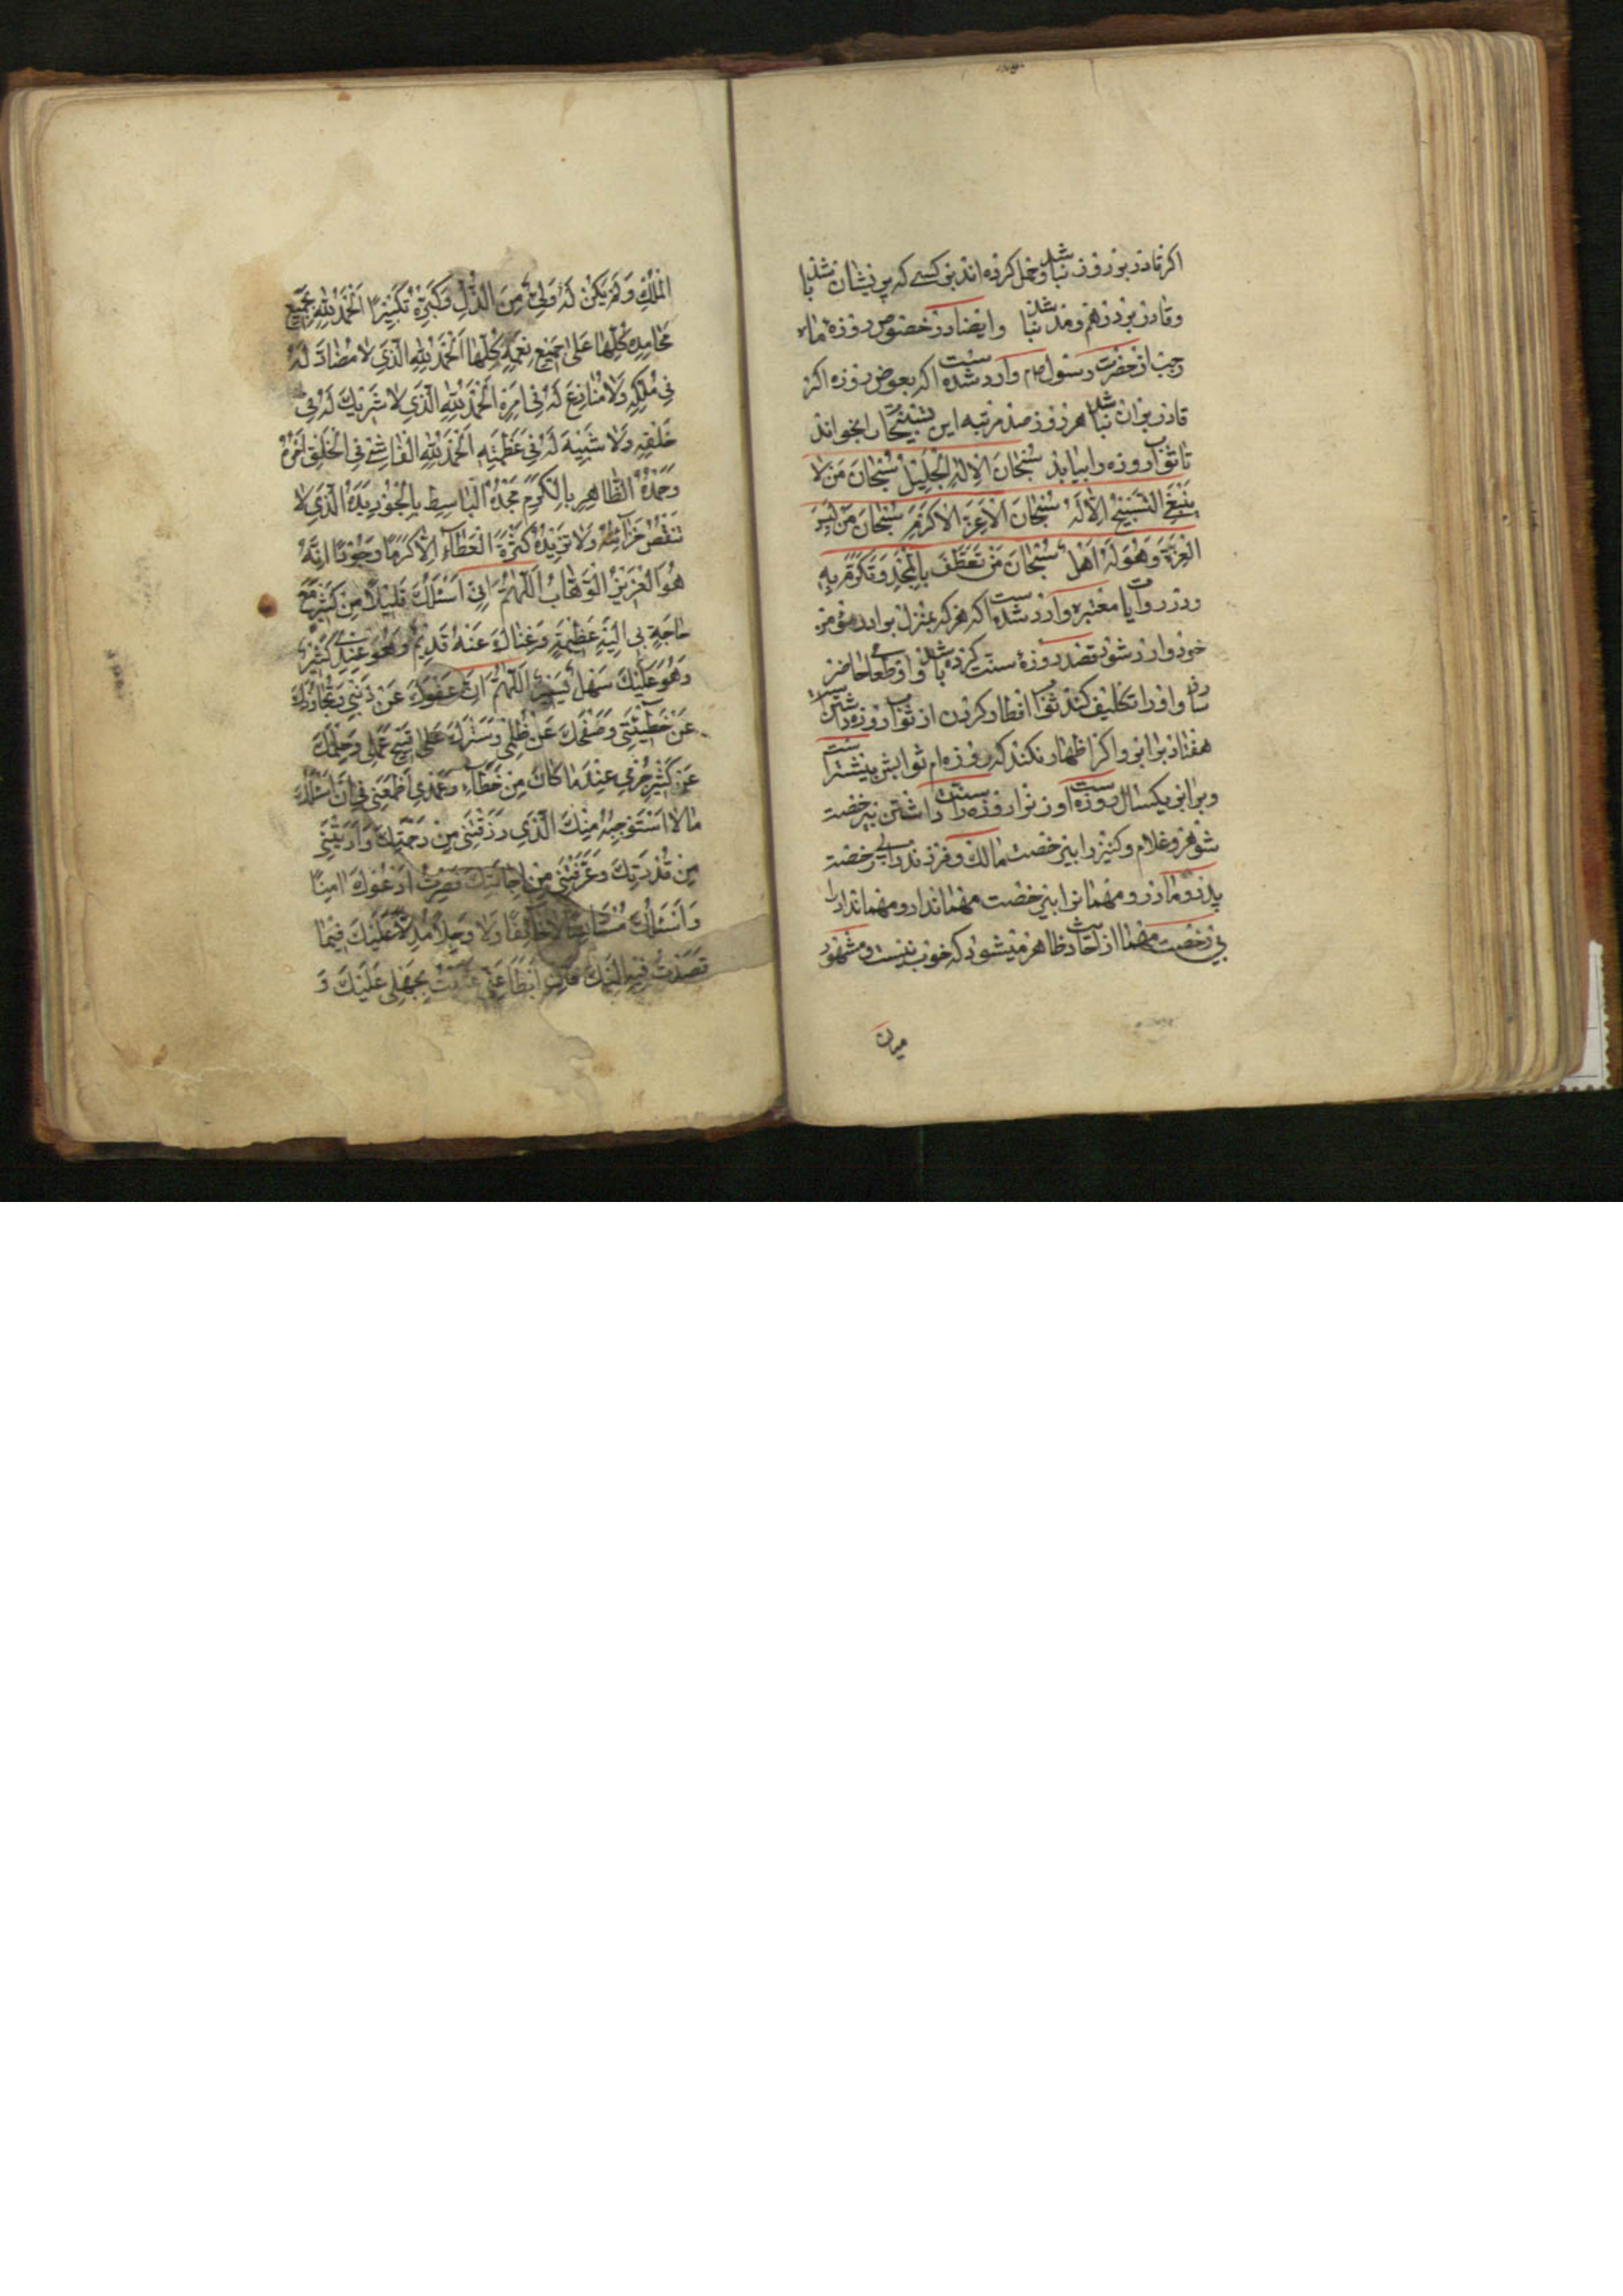 اکر قادر بر روزه نباشد و حمل کرده‌اند بر کسی که پریشان باشد
و قادر بر درهم و مد نباشد و ایضا در خصوص روزه ماه
رجب از حضرت رسول ص وارد شده است اکه بعوض روزه اکر
قادر بران نباشد هر روز صد مرتبه این تسبیح را بخواند
تا ثواب روزه را بیابد سُبْحانَ الاِلهِ الْجَلیلِ سُبْحانَ مَنْ لا
یَنْبَغِی التَّسْبیحُ اِلاّ لَهُ سُبْحانَ الاَعَزِّ الاَکْرَمِ سُبْحانَ مَنْ لَبِسَ
الْعِزَّ وَهُوَ لَهُ اَهْلٌ سُبْحانَ مَنْ تَعَطَّفَ بِالْمَجْدِ وَ تَکَرَّمَ بِهِ
و در روایات معتبره وارد شده است اکه هرکه بمنزل برادر مؤمن
خود وارد شود و قصد روزهٔ سنت کرده باشد و او طعامی حاضر
سازد و او را تکلیف کند ثواب افطار کردن از ثواب روزه داشتن
هفتاد برابر و اکر اظهار نکند که روزه‌ام ثوابش بیشتر است
و برابر یکسال روزه است و زن را روزه سنت داشتن بی رخصت
شوهر و غلام و کنیز را بی رخصت مالک و فرزند را بی رخصت
پدر و مادر و مهمان را بی رخصت مهماندار و مهماندار را
بی رخصت مهمان از احادیث ظاهر میشود که خوب نیست و مشهور
میان
الْمُلْکِ وَلَمْ یَکُنْ لَهُ وَلِیٌّ مِنَ الذُّلِّ وَکَبِّرْهُ تَکْبیراً اَلْحَمْدُ لِلّهِ بِجَمیعِ
مَحامِدِهِ کُلِّها عَلی جَمیعِ نِعَمِهِ کُلِّها اَلْحَمْدُ لِلّهِ الَّذی لا مُضادَّ لَهُ
فی مُلْکِهِ وَلا مُنازِعَ لَهُ فی اَمْرِهِ اَلْحَمْدُ لِلّهِ الَّذی لا شَریکَ لَهُ فی
خَلْقِهِ وَلا شَبیهَ لَهُ فی عَظَمَتِهِ اَلْحَمْدُ لِلّهِ الْفاشی فِی الْخَلْقِ اَمْرُهُ
وَحَمْدُهُ الظّاهِرِ بِالْکَرَمِ مَجْدُهُ الْباسِطِ بِالْجُودِ یَدَهُ الَّذی لا
تَنْقُصُ خَزائِنُهُ وَلا تَزیدُهُ کَثْرَةُ الْعَطآءِ اِلاّ کَرَماً وَجُوداً اِنَّهُ
هُوَ الْعَزیزُ الْوَهّابُ اَللّهُمَّ اِنّی اَسْئَلُکَ قَلیلاً مِنْ کَثیرٍ مَعَ
حاجَةٍ بی اِلَیْهِ عَظیمَةٍ وَغِناکَ عَنْهُ قَدیمٌ وَهُوَ عِنْدی کَثیرٌ
وَهُوَ عَلَیْکَ سَهْلٌ یَسیرٌ اَللّهُمَّ اِنَّ عَفْوَکَ عَنْ ذَنْبی وَتَجاوُزَکَ
عَنْ خَطیئَتی وَصَفْحَکَ عَنْ ظُلْمی وَسَتْرَکَ عَلی قَبیحِ عَمَلی وَحِلْمَکَ
عَنْ کَثیرِ جُرْمی عِنْدَ ما کانَ مِنْ خَطَآئی وَعَمْدی اَطْمَعَنی فی اَنْ اَسْئَلَکَ
ما لا اَسْتَوْجِبُهُ مِنْکَ الَّذی رَزَقْتَنی مِنْ رَحْمَتِکَ وَاَرَیْتَنی
مِنْ قُدْرَتِکَ وَعَرَّفْتَنی مِنْ اِجابَتِکَ فَصِرْتُ اَدْعُوکَ آمِناً
وَاَسْئَلُکَ مُسْتَاْنِساً لا خائِفاً وَلا وَجِلاً مُدِلاًّ عَلَیْکَ فیما
قَصَدْتُ فیهِ اِلَیْکَ فَاِنْ اَبْطَاَ عَنّی عَتَبْتُ بِجَهْلی عَلَیْکَ وَ